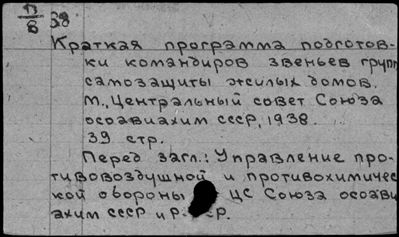 П
В 38
Краткая программа подготов-
ки командиров звеньев групп
самозащиты жилых домов.
М., Центральный совет Союза
осоавиахим СССР, 1938.
39 стр.
Перед загл.: Управление про-
тивовоздушной и противохимичес
кой обороны ЦС Союза осоави
ахим СССР и Р